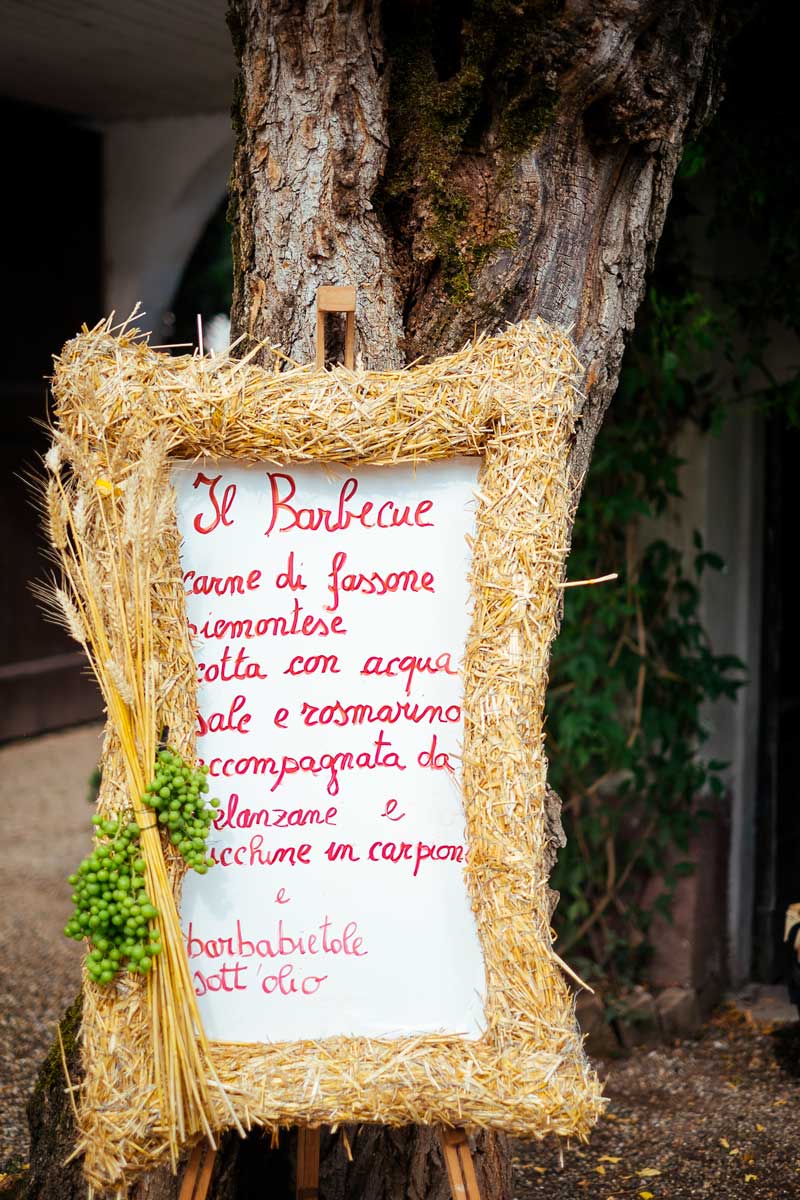 Il Barbecue
carne di fassone
piemontese
cotta con acqua
sale e rosmarino
accompagnata da
melanzane e
zucchine in carpione
e
barbabietole
sott'olio